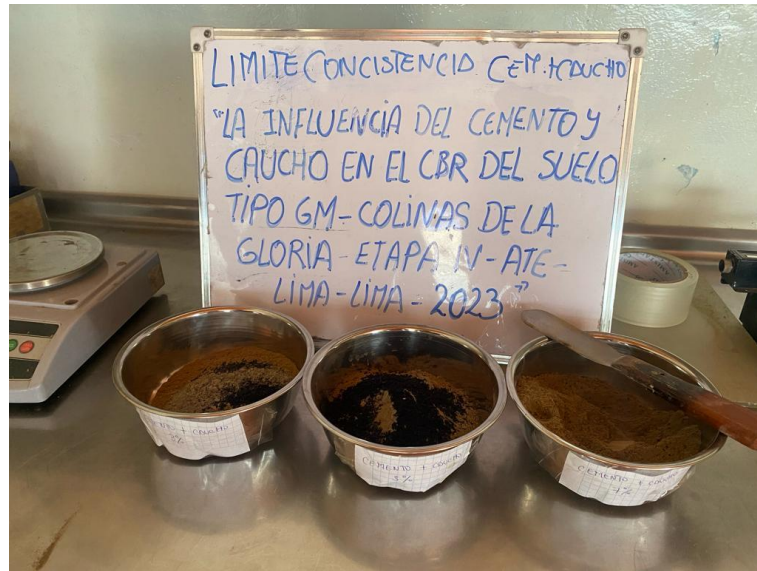 LIMITE CONCISTENCIA CEM.+CAUCHO
"LA INFLUENCIA DEL CEMENTO Y
CAUCHO EN EL CBR DEL SUELO
TIPO GM-COLINAS DE LA
GLORIA-ETAPA IV-ATE-
LIMA-LIMA-2023"
+ CAUCHO
CEMENTO + CAUCHO
3%
CEMENTO + CAUCHO